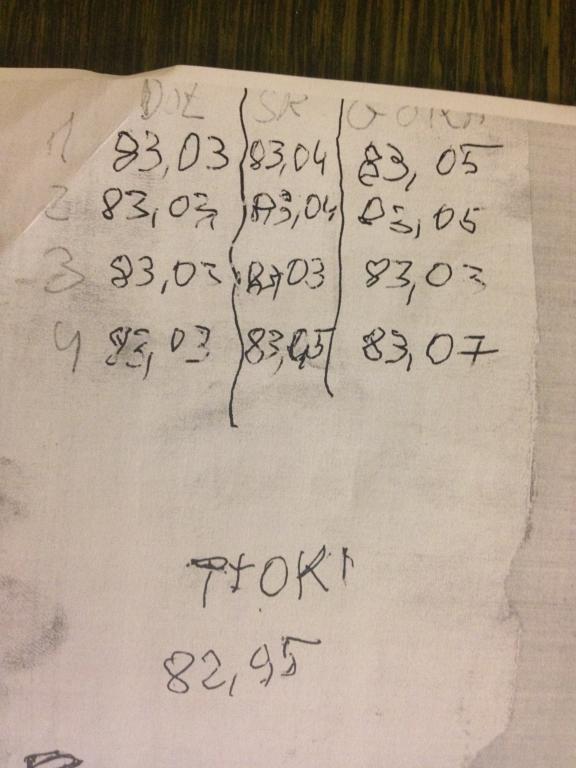 DÓŁ ŚR GÓRA
1 83,03 83,04 83,05
2 83,03 83,04 83,05
3 83,03 83,03 83,03
4 83,03 83,05 83,07
TŁOKI
82,95